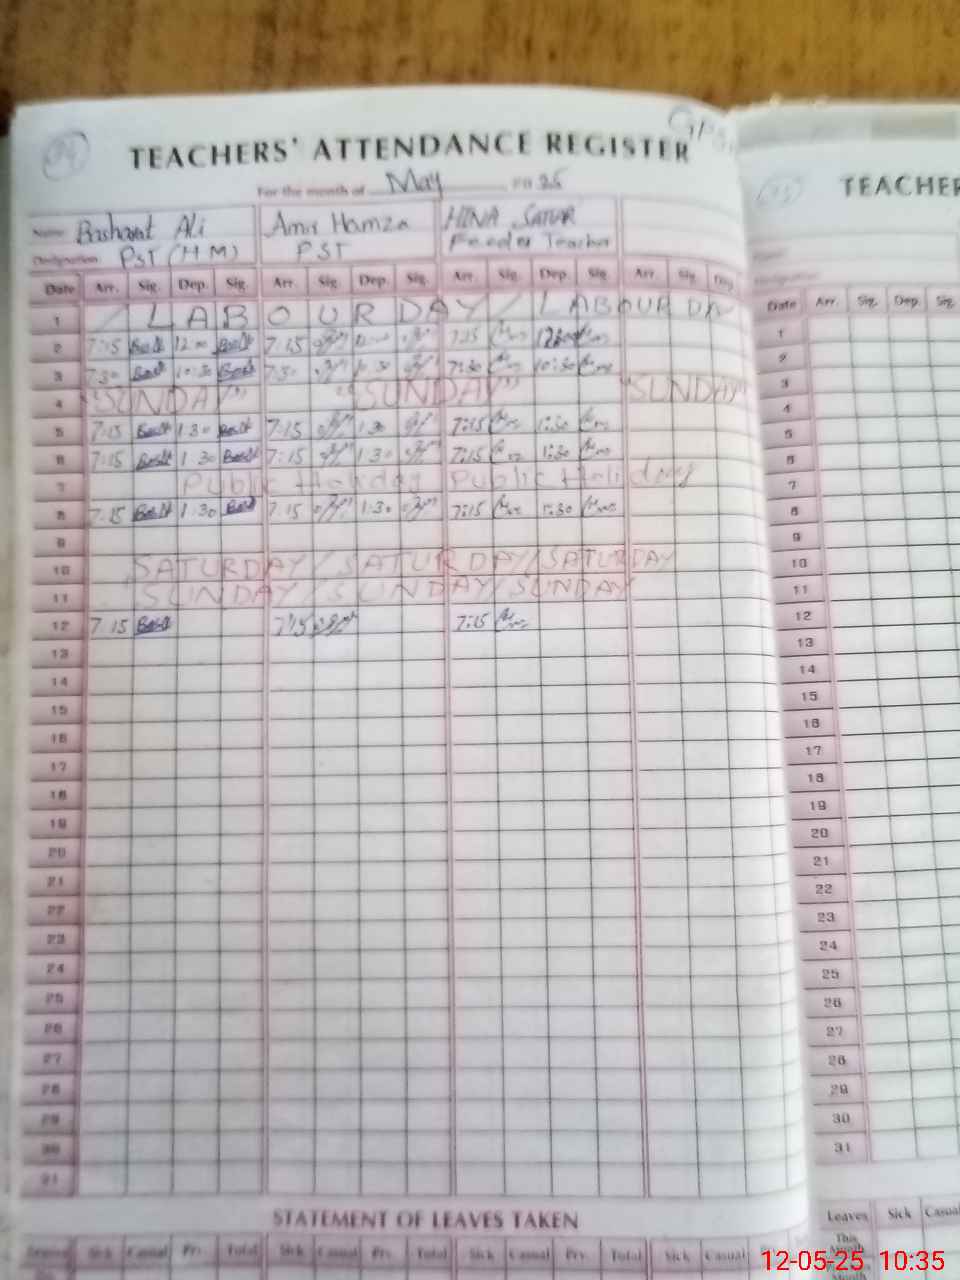 TEACHERS' ATTENDANCE REGISTER
For the month of May 2025
Name Basharat Ali Amir Hamza HINA SATUR
Designation PST (HM) PST Feeder Teacher
Date Arr. Sig. Dep. Sig. Arr. Sig. Dep. Sig. Arr. Sig. Dep. Sig. Arr. Sig. Dep.
1 / LABOUR DAY / LABOUR DA
2 7:15 12:00 7:15 7:15 12:00
3 7:30 10:30 7:30 10:30 7:30 10:30
4 "SUNDAY" "SUNDAY" "SUNDAY"
5 7:15 1:30 7:15 1:30 7:15 1:30
6 7:15 1:30 7:15 1:30 7:15 1:30
7 Public Holiday Public Holiday
8 7:15 1:30 7:15 1:30 7:15 1:30
9
10 SATURDAY / SATURDAY / SATURDAY
11 SUNDAY / SUNDAY / SUNDAY
12 7:15 7:15 7:15
13
14
15
16
17
18
19
20
21
22
23
24
25
26
27
28
29
30
31
STATEMENT OF LEAVES TAKEN
Leaves Sick Casual Prv. Total Sick Casual Prv. Total Sick Casual Prv. Total Sick Casual
TEACHER
Date Arr. Sig. Dep. Sig.
1
2
3
4
5
6
7
8
9
10
11
12
13
14
15
16
17
18
19
20
21
22
23
24
25
26
27
28
29
30
31
Leaves Sick Casual
This Month
Month
12-05-25 10:35